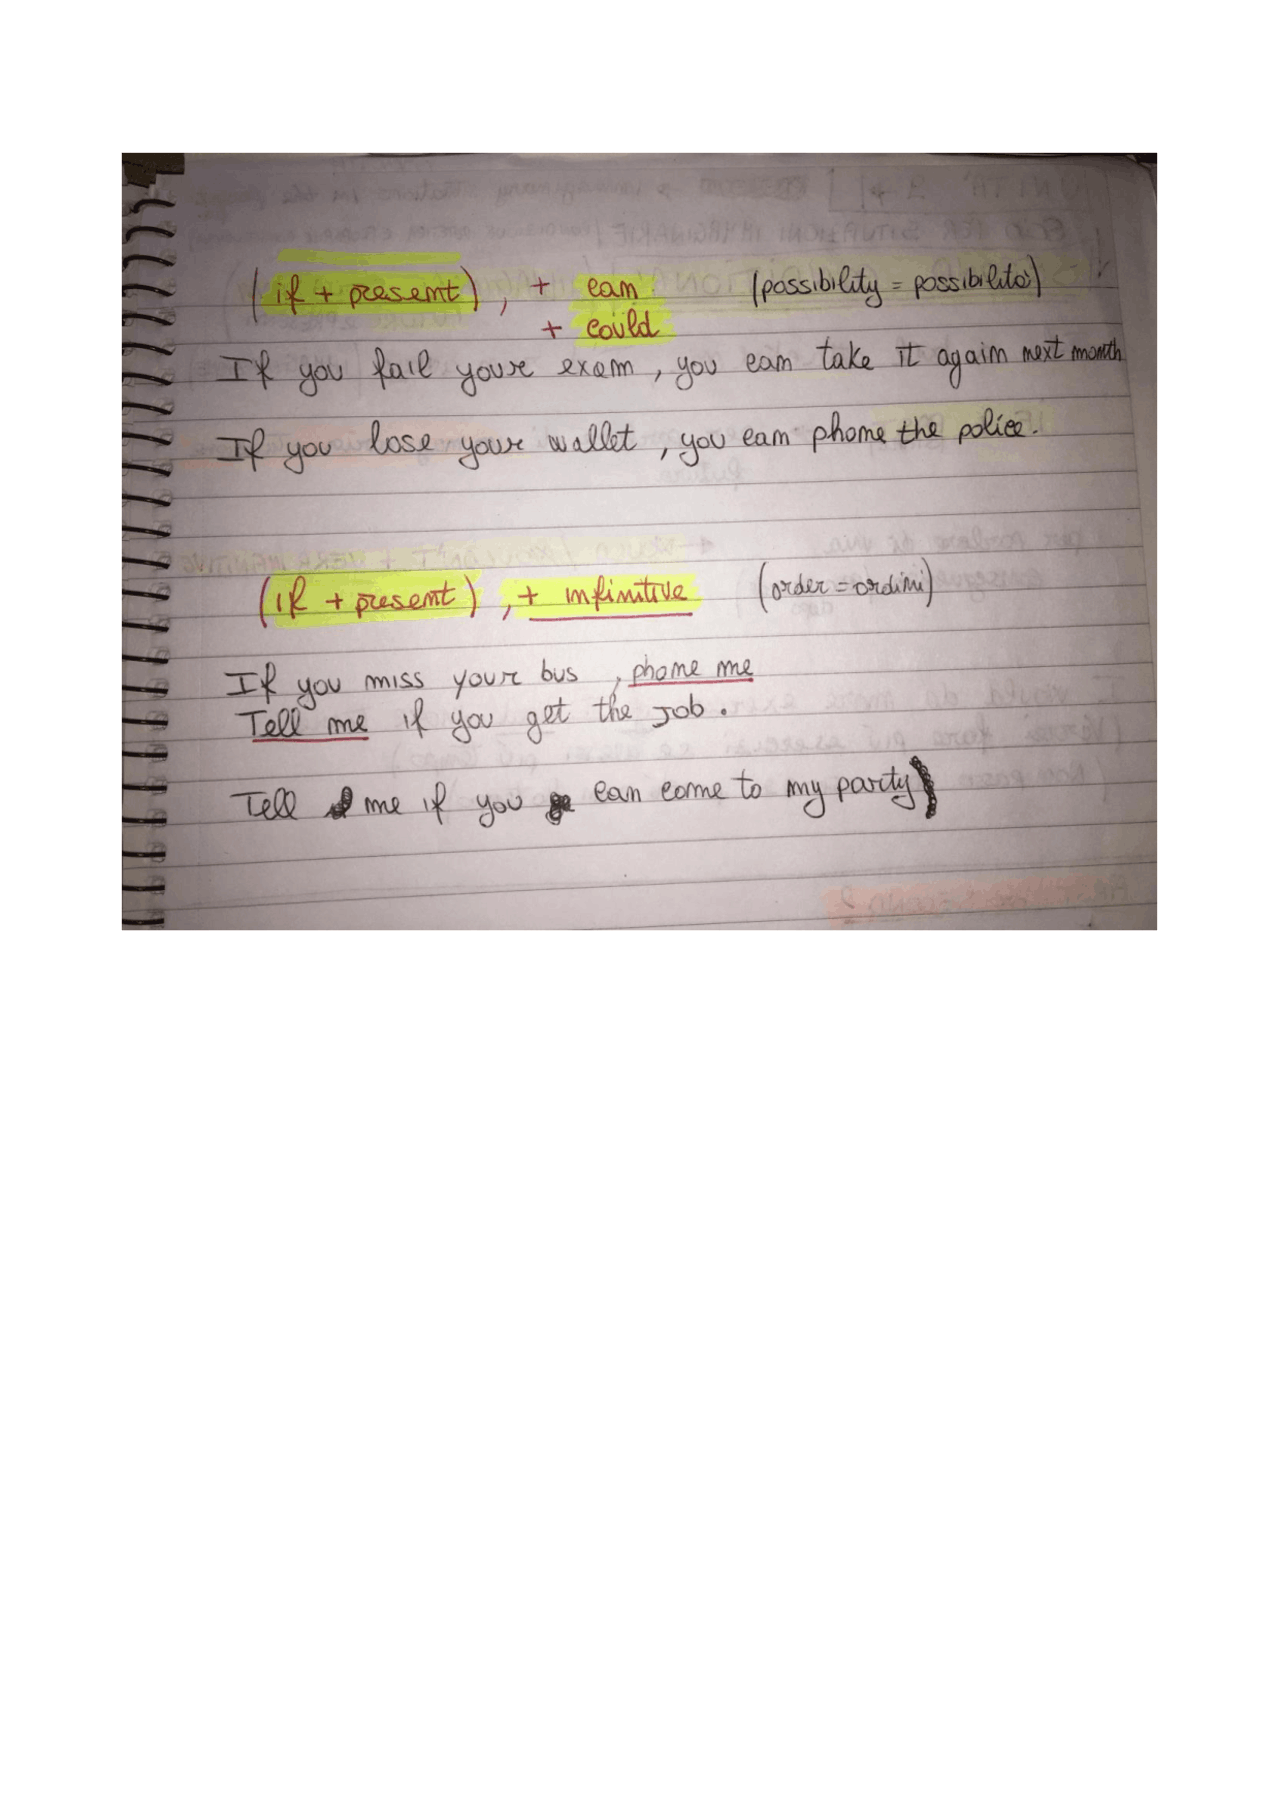 (if + present), + can (possibility = possibilità)
+ could
If you fail your exam, you can take it again next month
If you lose your wallet, you can phone the police.
(if + present), + infinitive (order = ordini)
If you miss your bus, phone me
Tell me if you get the job.
Tell me if you can come to my party